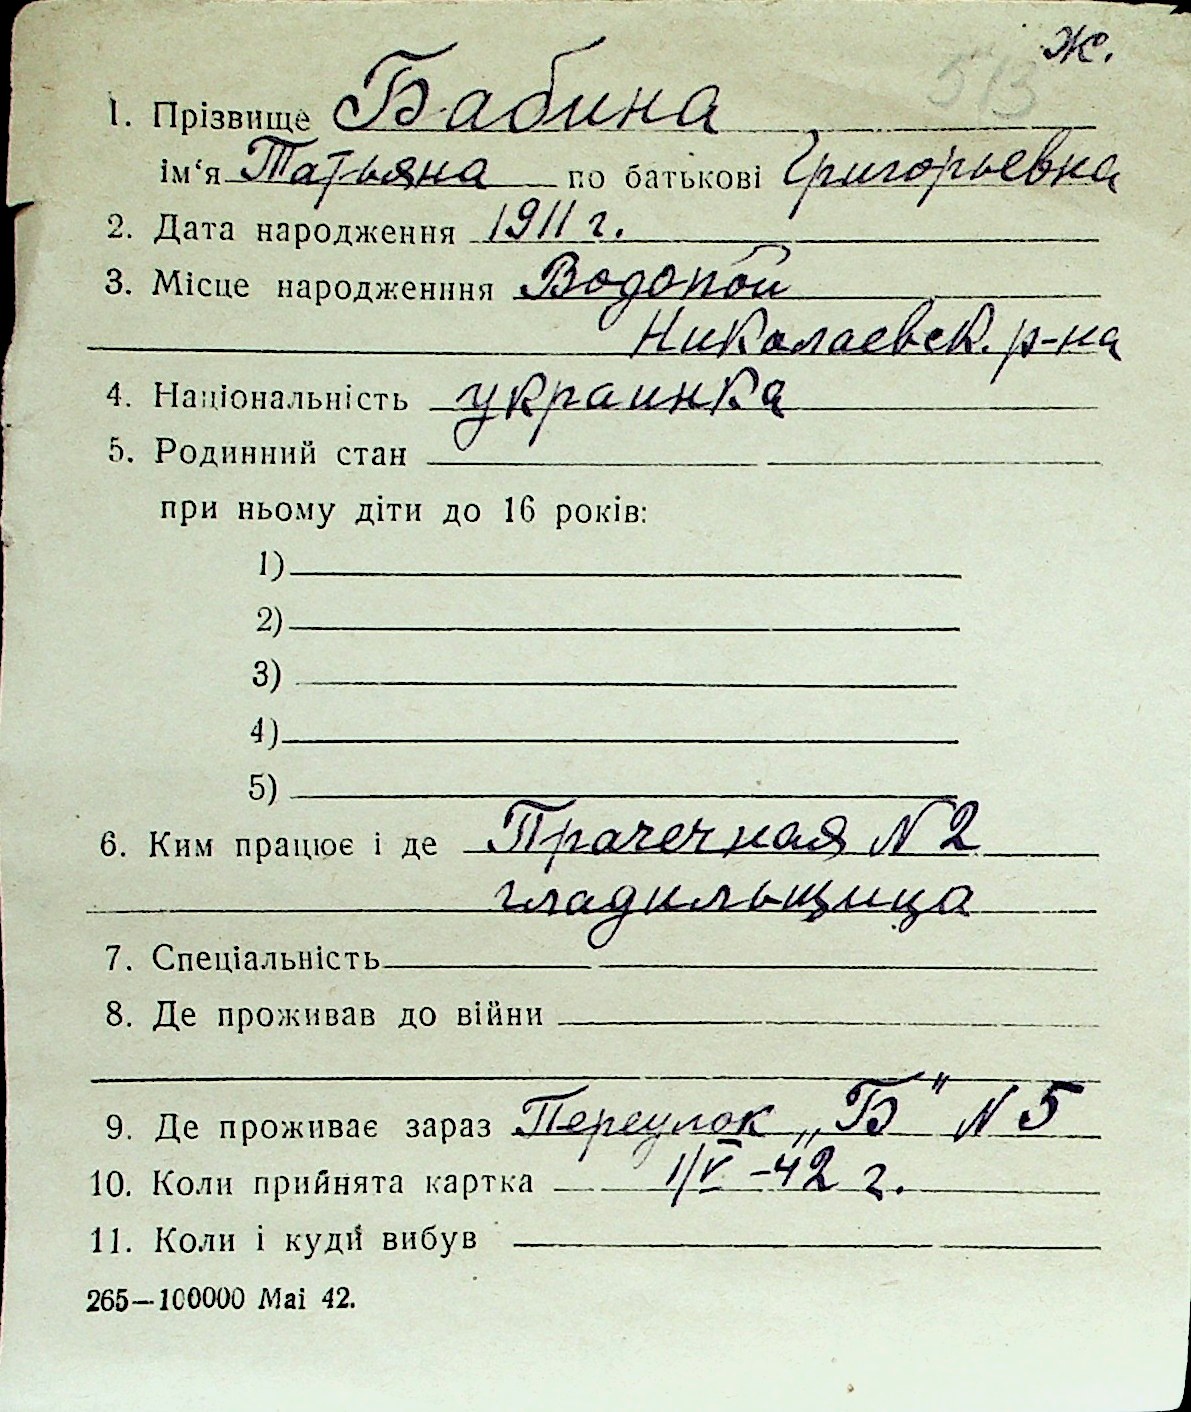 ж.
513
1. Прізвище Бабина
ім‘я Татьяна по батькові Григорьевна
2. Дата народження 1911 г.
3. Місце народженння Водопой
Николаевск. р-на
4. Національність украинка
5. Родинний стан
при ньому діти до 16 років:
1)
2)
3)
4)
5)
6. Ким працює і де Прачечная N 2
гладильщица
7. Спеціальність
8. Де проживав до війни
9. Де проживає зараз Переулок „Б" N 5
10. Коли прийнята картка 1/V -42 г.
11. Коли і куди вибув
265—100000 Mai 42.